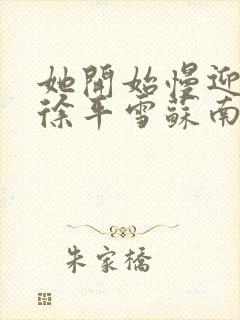 她開始慢迎
徐平雪蘇南
朱家橋